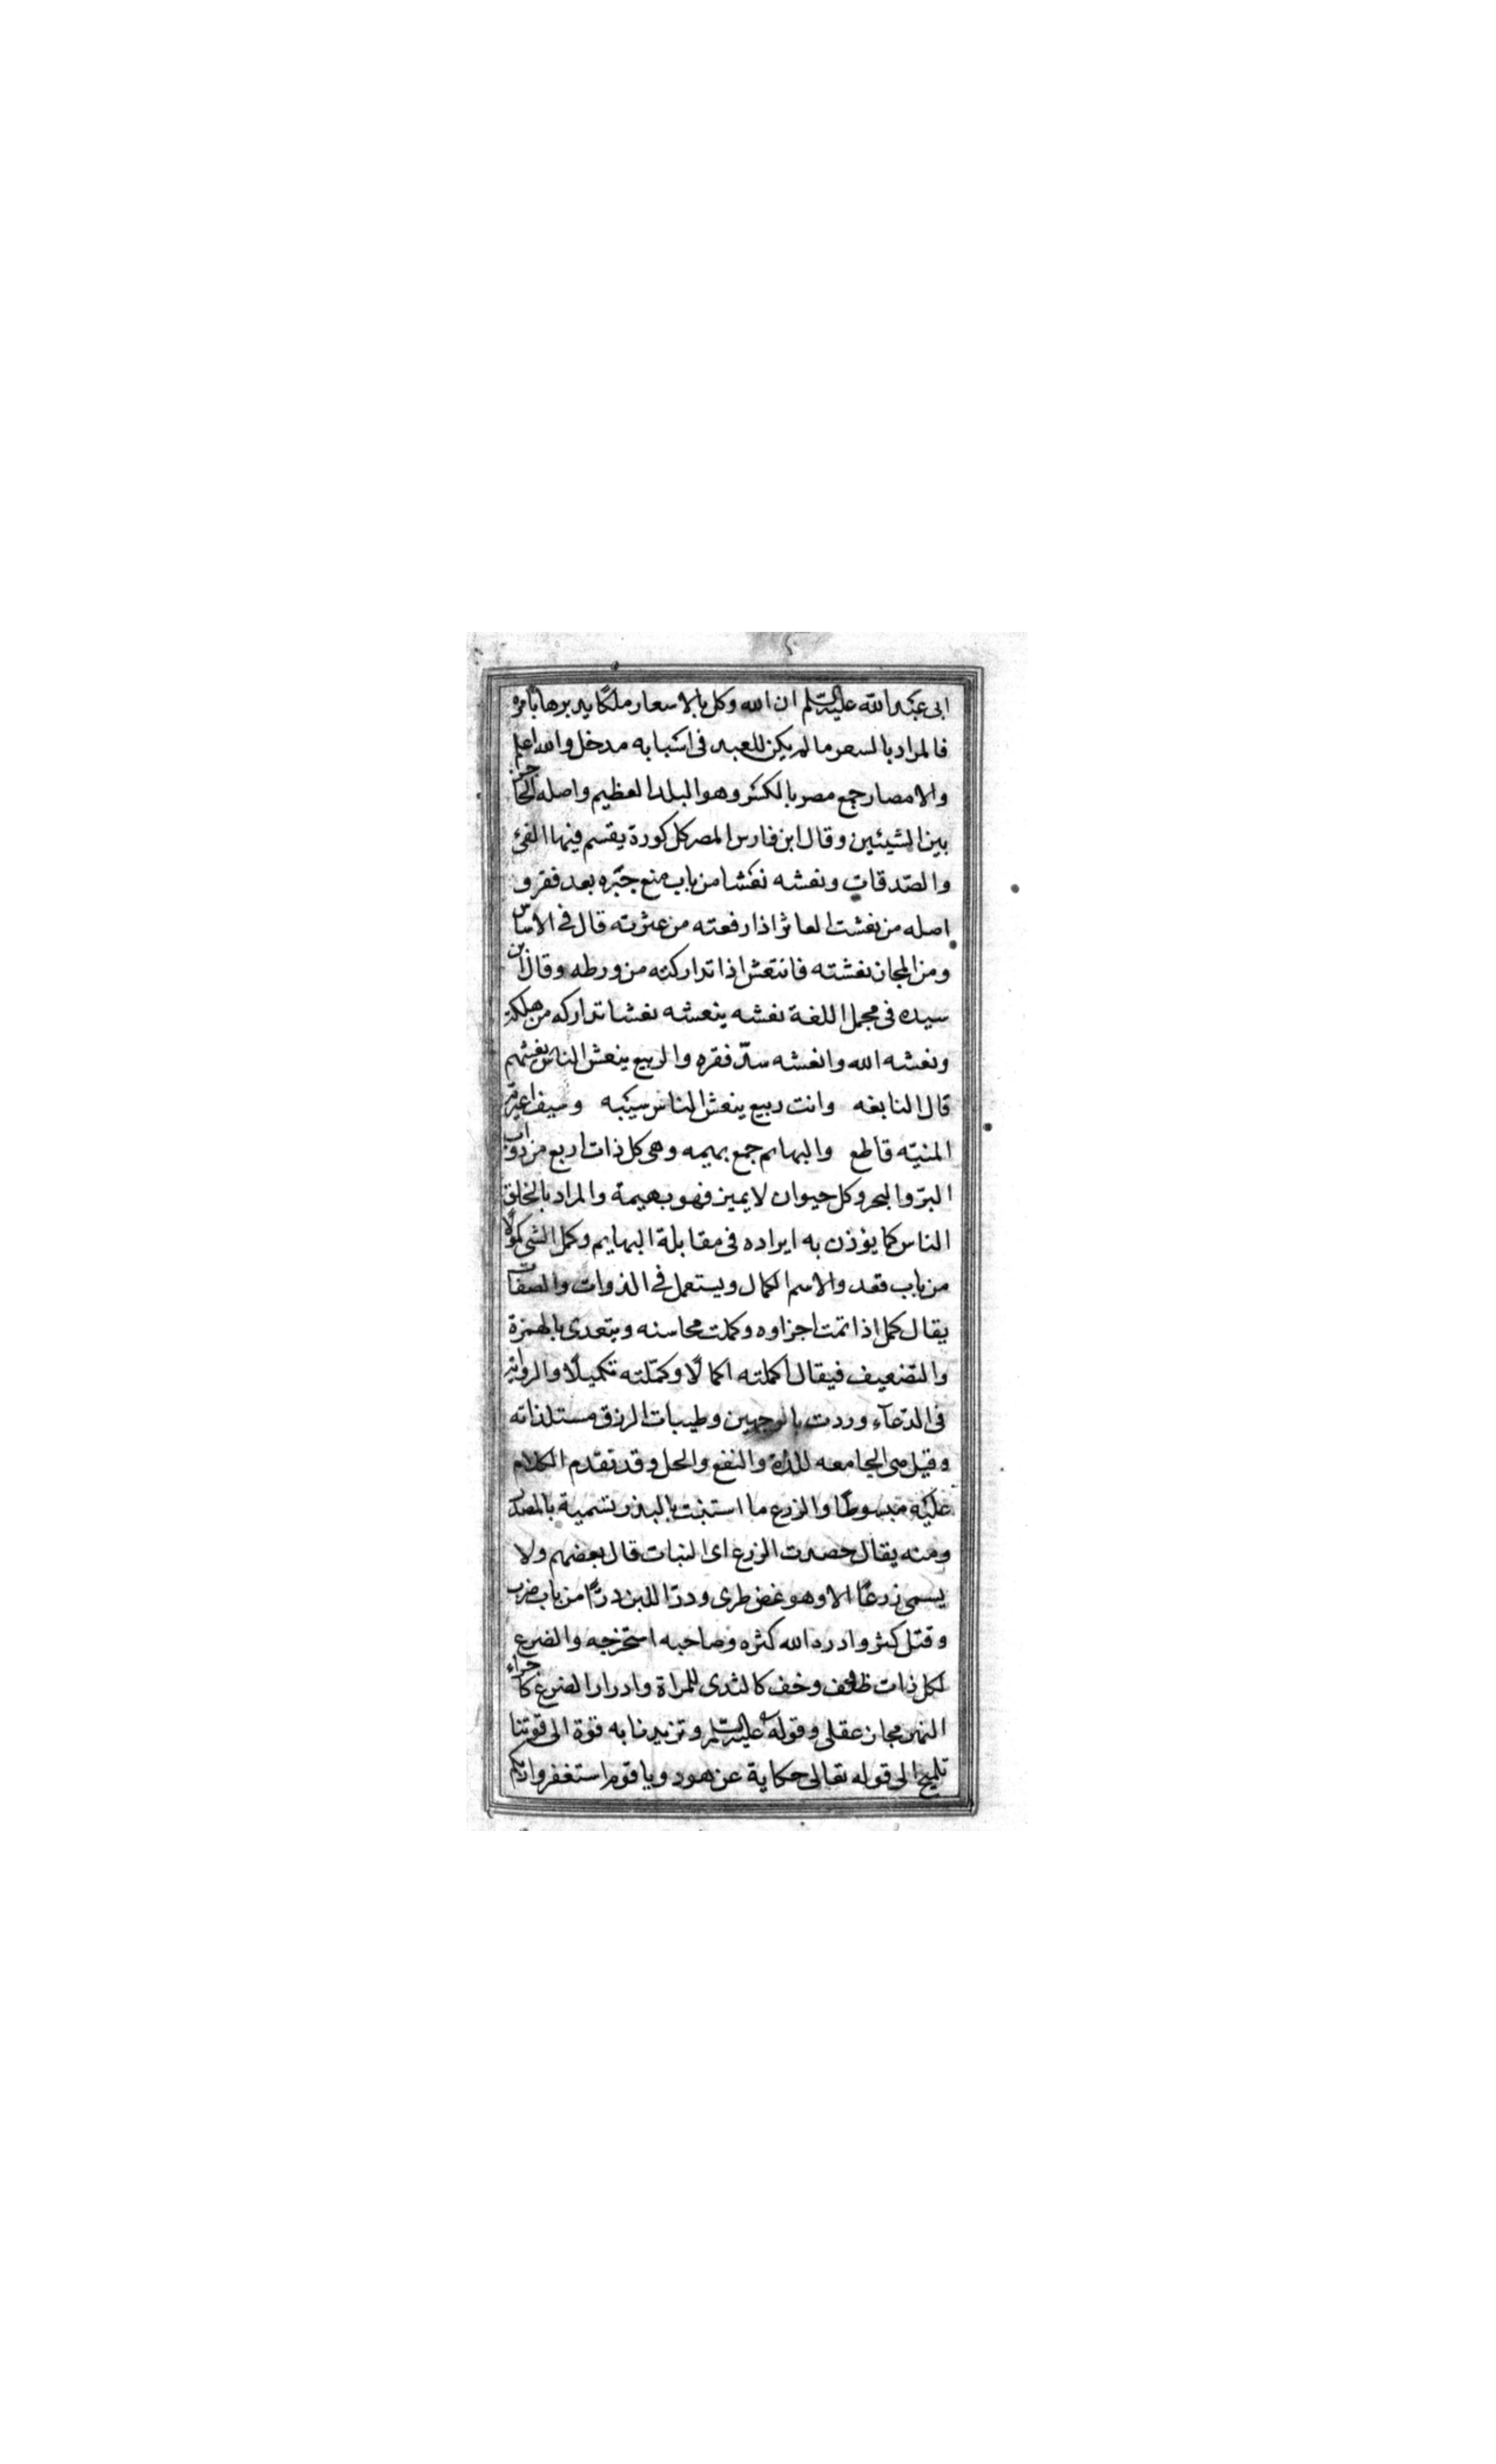 ابى عبد الله عليه السلم ان الله وكل بالاسعار ملكا يدبرها بامره
فالمراد بالسعر ما لم يكن للعبد فى اسبابه مدخل والله اعلم
والامصار جمع مصر بالكسر وهو البلد العظيم واصله الحاجز
بين الشيئين وقال ابن فارس المصر كل كورة يقسم فيها الفئ
والصّدقات ونعشه نعشا من باب منع جبره بعد فقر و
اصله من نعشت العاثر اذا رفعته من عثرته قال فى الاساس
ومن المجاز نعشته فانتعش اذا تداركته من ورطه وقال ابن
سيده فى مجمل اللغة نعشه ينعشه نعشا تداركه من هلكة
ونعشه الله وانعشه سدّ فقره والربيع ينعش الناس يعشهم
قال النابغه وانت ربيع ينعش الناس سيبه وسيف اعيرته
المنيّه قاطع والبهائم جمع بهيمه وهى كل ذات اربع من دواب
البرّ والبحر وكل حيوان لا يميز فهو بهيمة والمراد بالخلق
الناس كما يؤذن به ايراده فى مقابلة البهايم وكمل الشى كمولا
من باب قعد والاسم الكمال ويستعمل فى الذوات والصفات
يقال كمل اذا تمت اجزاوه وكملت محاسنه ويتعدى بالهمزة
والتضعيف فيقال اكملته اكمالًا وكمّلته تكميلًا والرواية
فى الدّعآء وردت بالوجهين وطيبات الرزق مستلذاته
وقيل هى الجامعه للذة والنفع والحل وقد تقدم الكلام
عليه مبسوطا والزرع ما استنبت بالبذر تسمية بالمصدر
ومنه يقال حصدت الزرع اى النبات قال بعضهم ولا
يسمى زرعًا الا وهو غض طرى ودرّ اللبن درًّا من باب ضرب
وقتل كثر وادره الله كثره وصاحبه استخرجه والضرع
لكل ذات ظلف وخف كالثدى للمراة وادرار الضرع كاجراء
النهر مجاز عقلى وقوله عليه السلم وتزيدنا به قوة الى قوتنا
تلميح الى قوله تعالى حكاية عن هود ويا قوم استغفروا ربكم